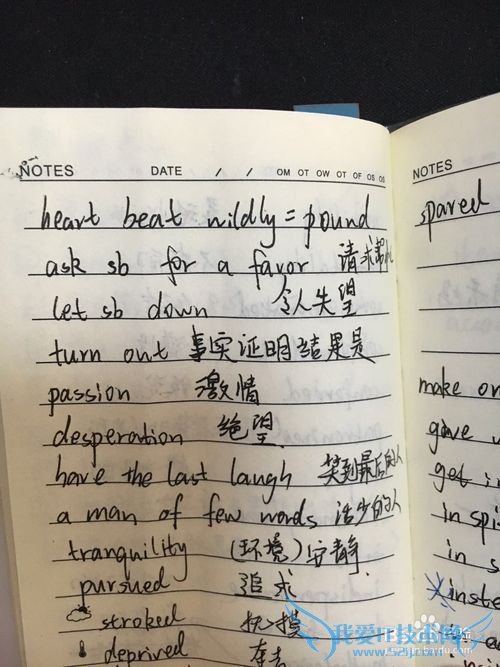 NOTES DATE / / OM OT OW OT OF OS OS
heart beat wildly = pound
ask sb for a favor 请求帮忙
let sb down 令人失望
turn out 事实证明结果是
passion 激情
desperation 绝望
have the last laugh 笑到最后的人
a man of few words 话少的人
tranquility (环境)安静
pursued 追求
stroked 抚摸
deprived
NOTES
spared
make
gave
get in
in spi
in s
inste
我爱IT技术网
www.52ij.com